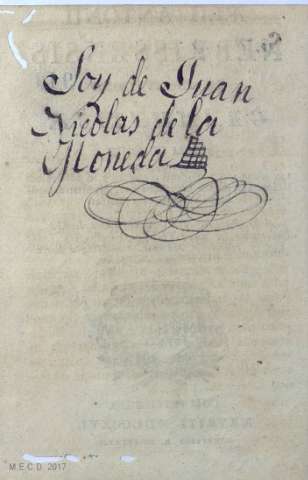 Soy de Juan
Nicolas de la
Moneda
M.E.C.D. 2017